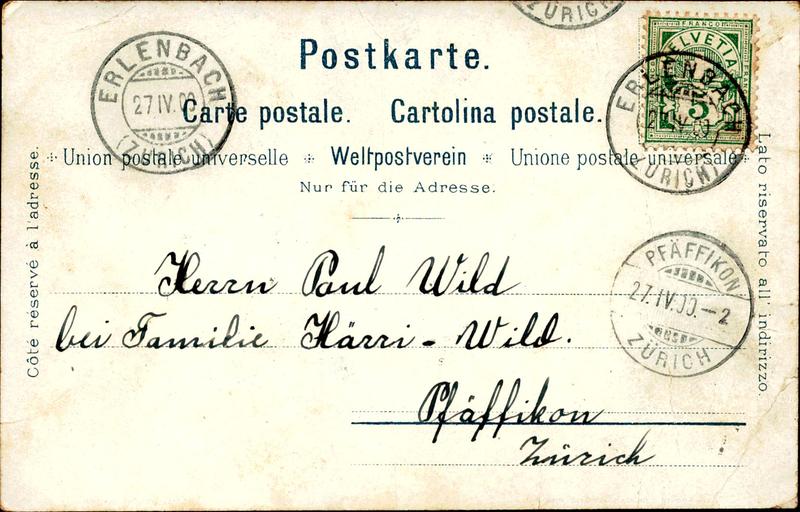 ZÜRICH
FRANCO
HELVETIA
5
Postkarte.
ERLENBACH
27 IV.00
(ZÜRICH)
ERLENBACH
(ZÜRICH)
Carte postale. Cartolina postale.
Union postale universelle Weltpostverein Unione postale universale
Nur für die Adresse.
Côté réservé à l'adresse.
Lato riservato all' indirizzo.
PFÄFFIKON
27.IV.00.–2
ZÜRICH
Herrn Paul Wild
bei Familie Härri - Wild.
Pfäffikon
Zürich